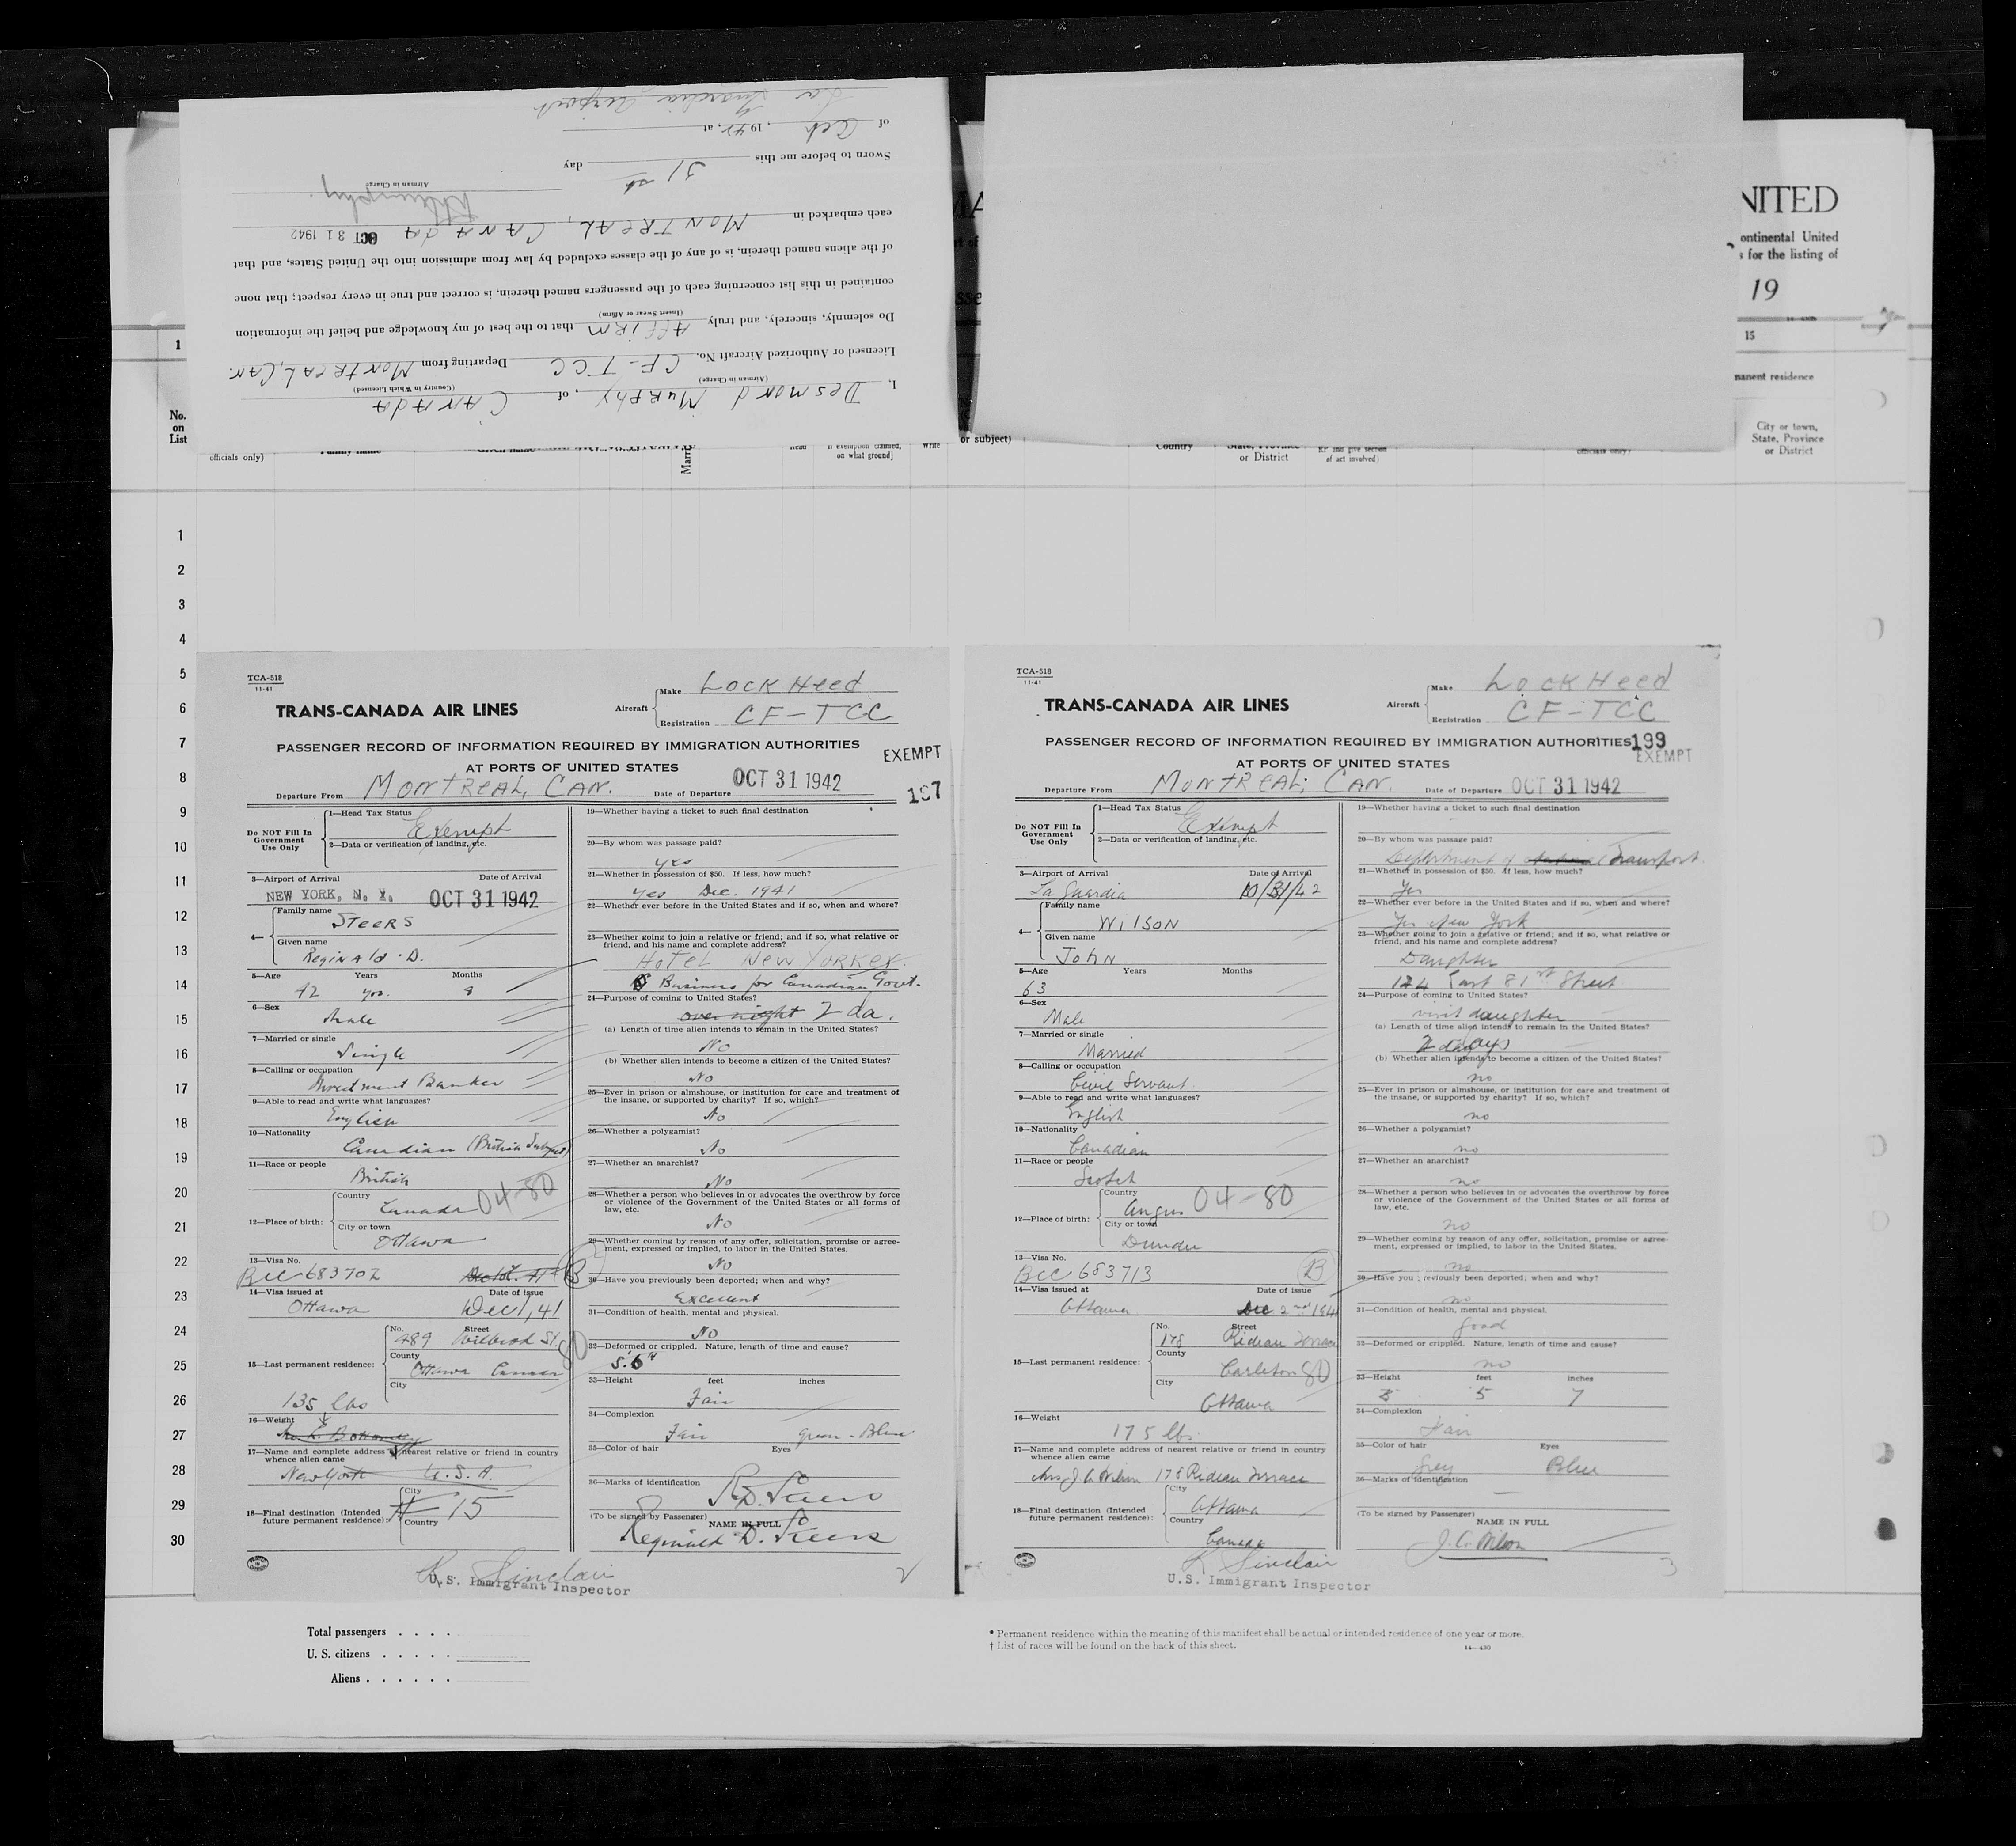 I, Desmond Murphy, of CANAdA
(Airman in Charge) (Country in Which Licensed)
Licensed or Authorized Aircraft No. CF-TCC Departing from MONTREAL, CAN.
Do solemnly, sincerely, and truly AFFIRM that to the best of my knowledge and belief the information
(Insert Swear or Affirm)
contained in this list concerning each of the passengers named therein, is correct and true in every respect; that none
of the aliens named therein, is of any of the classes excluded by law from admission into the United States, and that
each embarked in MONTREAL, CANAdA OCT 31 1942
Airman in Charge
Sworn to before me this 31 st day
of Oct, 1942, at
La Guardia Airport
NITED
ontinental United
s for the listing of
19
15
manent residence
City or town,
State, Province
or District
1
No.
on
List
officials only)
Family name
Given name
Marr
Read
on what ground]
Write
or subject)
Country
or District
of act involved)
1
2
3
4
5
6
7
8
9
10
11
12
13
14
15
16
17
18
19
20
21
22
23
24
25
26
27
28
29
30
TCA-518
11-41
TRANS-CANADA AIR LINES
Aircraft
Make LockHeed
Registration CF-TCC
PASSENGER RECORD OF INFORMATION REQUIRED BY IMMIGRATION AUTHORITIES
AT PORTS OF UNITED STATES
EXEMPT
Departure From MONTREAL, CAN. Date of Departure OCT 31 1942
Do NOT Fill In
Government
Use Only
1—Head Tax Status Exempt
2—Data or verification of landing, etc.
3—Airport of Arrival Date of Arrival
NEW YORK, N. Y. OCT 31 1942
4— Family name
Steers
Given name
Reginald D.
5—Age Years Months
42 yrs. 8
6—Sex
Male
7—Married or single
Single
8—Calling or occupation
Investment Banker
9—Able to read and write what languages?
English
10—Nationality
Canadian (British Subject)
11—Race or people
British
12—Place of birth:
Country
Canada 04-80
City or town
Ottawa
13—Visa No.
BCC 683702
B
14—Visa issued at Date of issue
Ottawa Dec 1, 41
15—Last permanent residence:
No. Street
489 Wilbrod St.
80
County
Ottawa
City
135 lbs
16—Weight
17—Name and complete address of nearest relative or friend in country
whence alien came
New York U.S.A.
18—Final destination (Intended
future permanent residence):
City
15
Country
19—Whether having a ticket to such final destination
20—By whom was passage paid?
yes
21—Whether in possession of $50. If less, how much?
yes Dec. 1941
22—Whether ever before in the United States and if so, when and where?
23—Whether going to join a relative or friend; and if so, what relative or
friend, and his name and complete address?
Hotel New Yorker.
Business for Canadian Govt.
24—Purpose of coming to United States?
over night 2 da.
(a) Length of time alien intends to remain in the United States?
No
(b) Whether alien intends to become a citizen of the United States?
No
25—Ever in prison or almshouse, or institution for care and treatment of
the insane, or supported by charity? If so, which?
No
26—Whether a polygamist?
No
27—Whether an anarchist?
No
28—Whether a person who believes in or advocates the overthrow by force
or violence of the Government of the United States or all forms of
law, etc.
No
29—Whether coming by reason of any offer, solicitation, promise or agree-
ment, expressed or implied, to labor in the United States.
No
30—Have you previously been deported; when and why?
Excellent
31—Condition of health, mental and physical.
No
32—Deformed or crippled. Nature, length of time and cause?
5'.6"
33—Height feet inches
Fair
34—Complexion
Fair Green-Blue
35—Color of hair Eyes
36—Marks of identification
R.D. Steers
(To be signed by Passenger) NAME IN FULL
Reginald D. Steers
R. Sinclair
U.S. Immigrant Inspector
2
TCA-518
11-41
TRANS-CANADA AIR LINES
Aircraft
Make LockHeed
Registration CF-TCC
PASSENGER RECORD OF INFORMATION REQUIRED BY IMMIGRATION AUTHORITIES 199
AT PORTS OF UNITED STATES
EXEMPT
Departure From MONTREAL, CAN. Date of Departure OCT 31 1942
Do NOT Fill In
Government
Use Only
1—Head Tax Status
Exempt
2—Data or verification of landing, etc.
3—Airport of Arrival Date of Arrival
La Guardia 10/31/42
4— Family name
Wilson
Given name
John
5—Age Years Months
63
6—Sex
Male
7—Married or single
Married
8—Calling or occupation
Civil Servant
9—Able to read and write what languages?
English
10—Nationality
Canadian
11—Race or people
Scotch
12—Place of birth:
Country
Angus 04-80
City or town
Dundee
13—Visa No.
BCC 683713 B
14—Visa issued at Date of issue
Ottawa Dec 2nd 1941
15—Last permanent residence:
No. Street
178 Rideau Terrace
County
Carleton 80
City
Ottawa
16—Weight
175 lbs.
17—Name and complete address of nearest relative or friend in country
whence alien came
Mrs J C Wilson 178 Rideau Terrace
18—Final destination (Intended
future permanent residence):
City
Ottawa
Country
Canada
19—Whether having a ticket to such final destination
20—By whom was passage paid?
Department of Transport
21—Whether in possession of $50. If less, how much?
Yes
22—Whether ever before in the United States and if so, when and where?
Yes New York
23—Whether going to join a relative or friend; and if so, what relative or
friend, and his name and complete address?
Daughter
124 East 81st Street
24—Purpose of coming to United States?
visit daughter
(a) Length of time alien intends to remain in the United States?
2 days
(b) Whether alien intends to become a citizen of the United States?
no
25—Ever in prison or almshouse, or institution for care and treatment of
the insane, or supported by charity? If so, which?
no
26—Whether a polygamist?
no
27—Whether an anarchist?
no
28—Whether a person who believes in or advocates the overthrow by force
or violence of the Government of the United States or all forms of
law, etc.
no
29—Whether coming by reason of any offer, solicitation, promise or agree-
ment, expressed or implied, to labor in the United States.
no
30—Have you previously been deported; when and why?
no
31—Condition of health, mental and physical.
good
32—Deformed or crippled. Nature, length of time and cause?
no
33—Height feet inches
5 7
34—Complexion
Fair
35—Color of hair Eyes
Grey Blue
36—Marks of identification
(To be signed by Passenger)
NAME IN FULL
J. C. Wilson
R Sinclair
U.S. Immigrant Inspector
3
Total passengers . . . .
U. S. citizens . . . . .
Aliens . . . . . .
* Permanent residence within the meaning of this manifest shall be actual or intended residence of one year or more.
† List of races will be found on the back of this sheet.